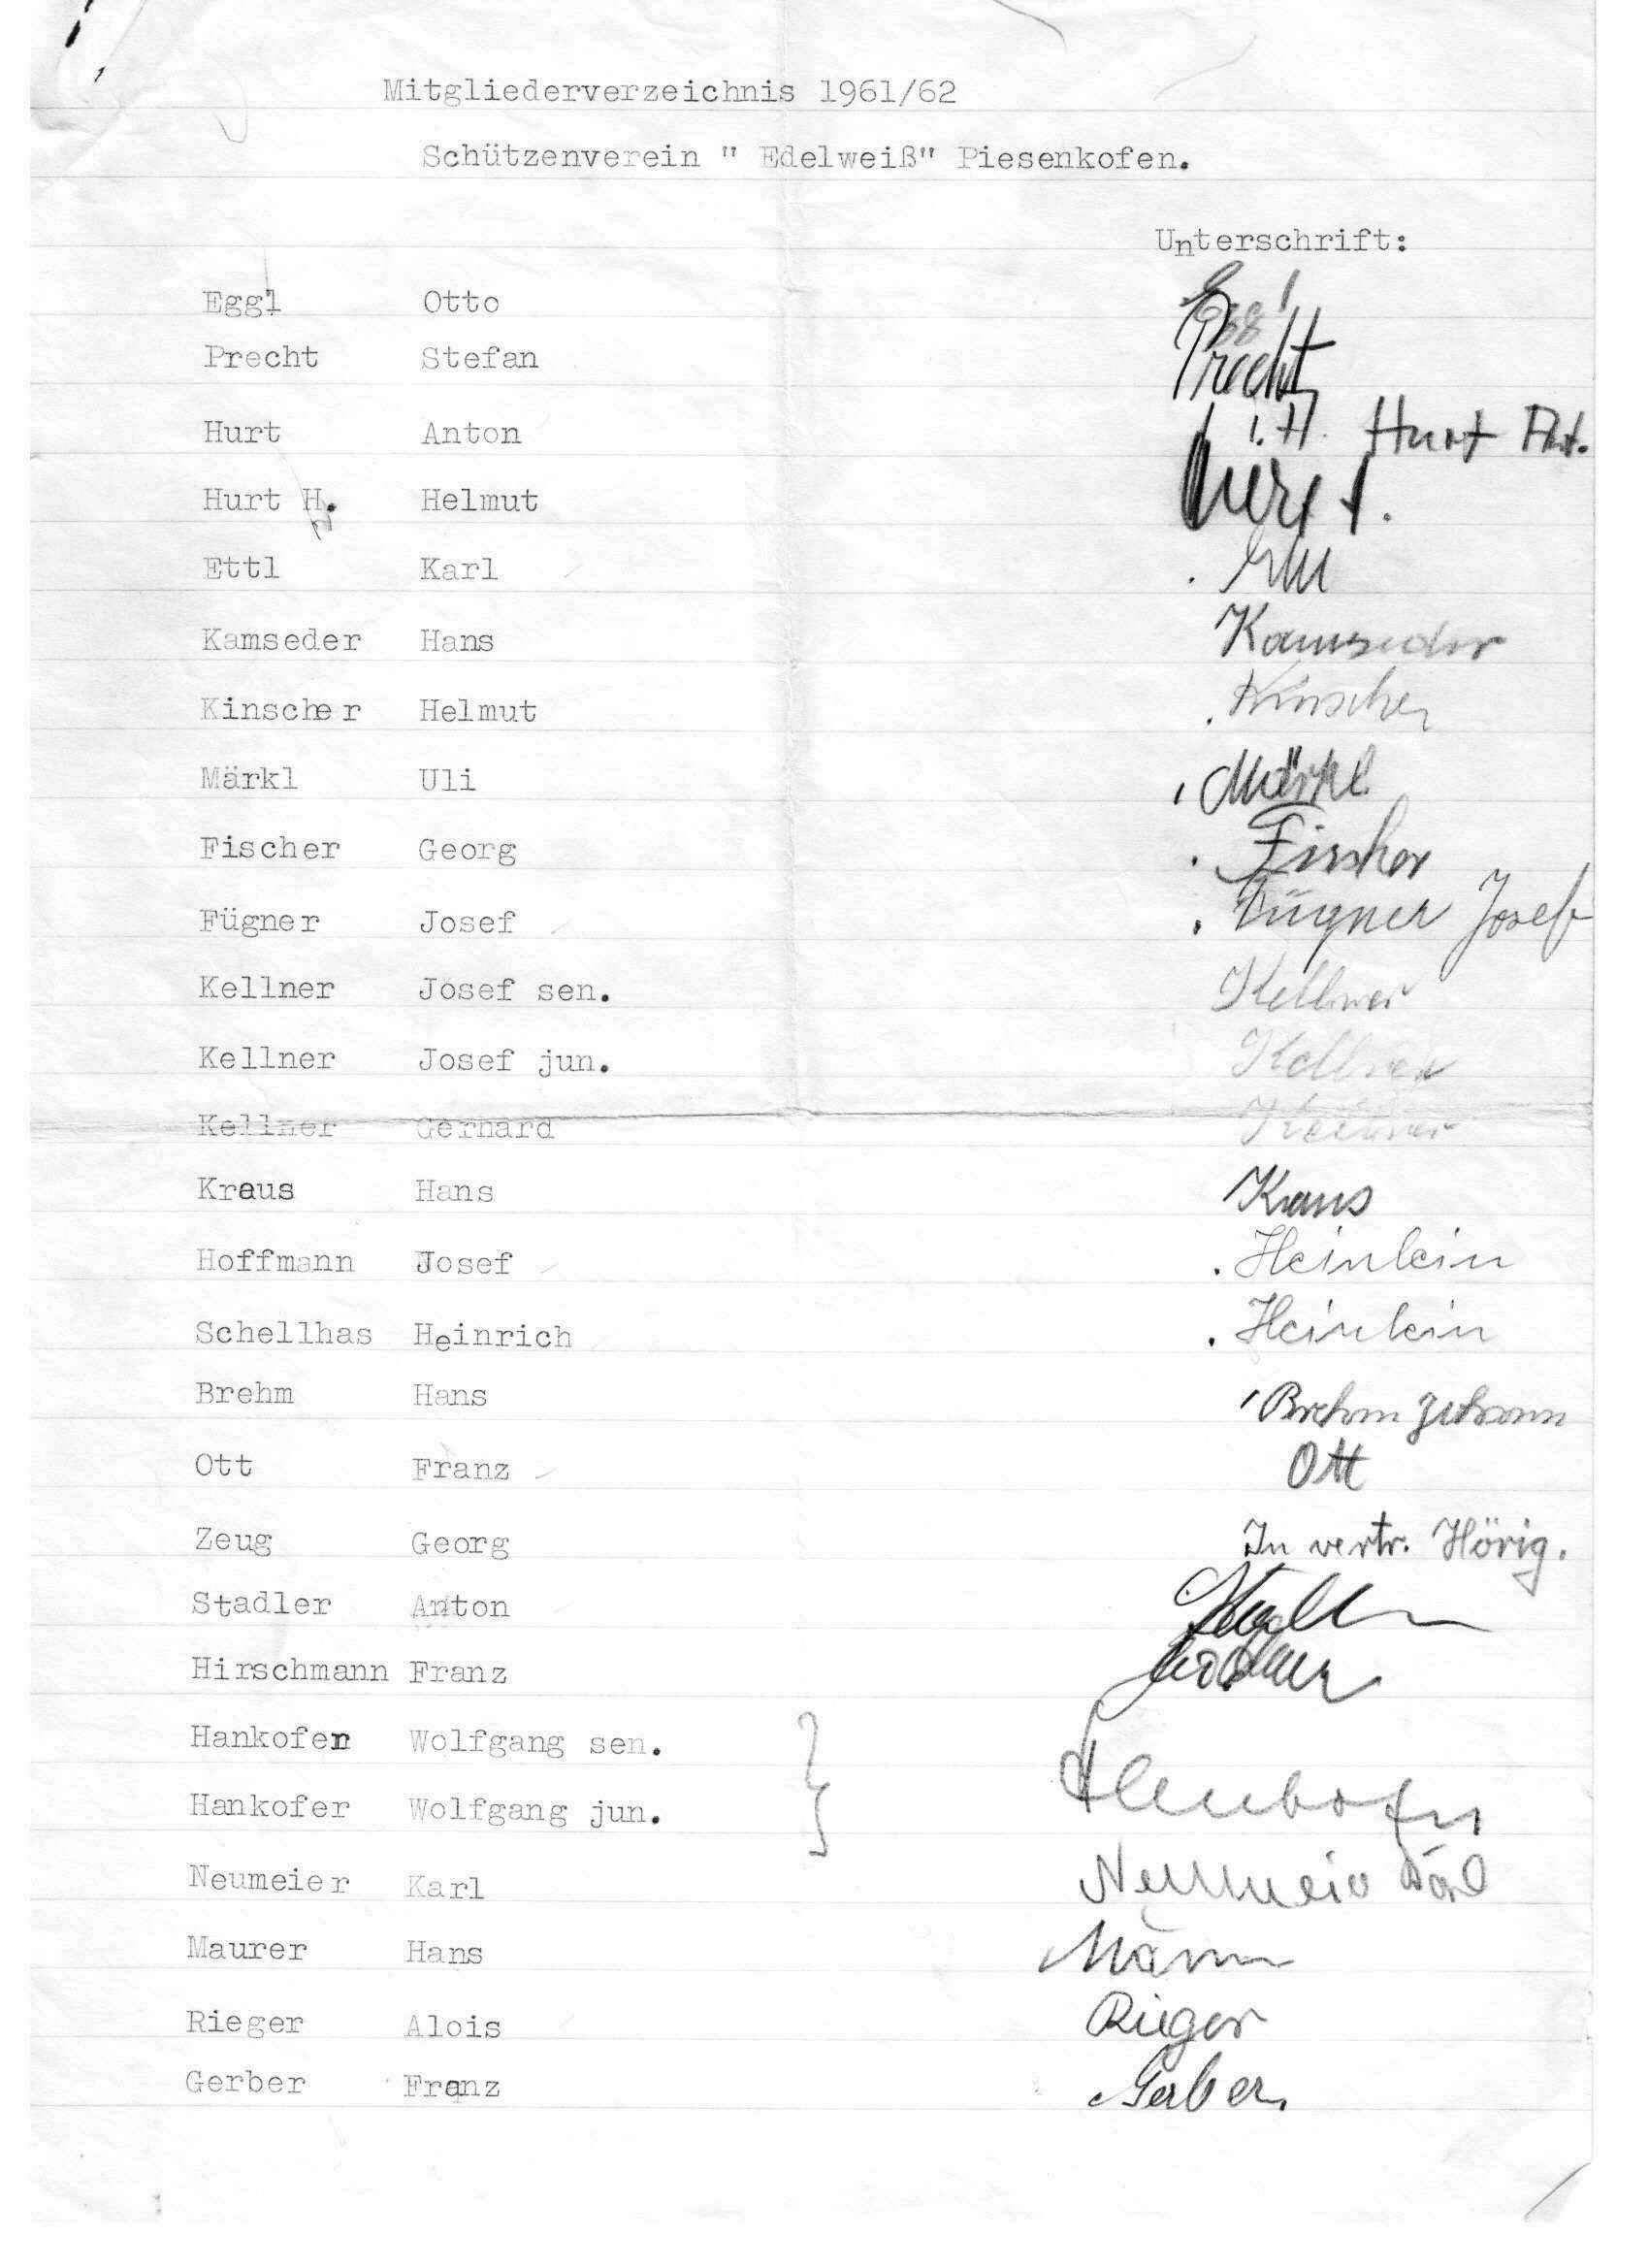 Mitgliederverzeichnis 1961/62
Schützenverein " Edelweiß" Piesenkofen.
Unterschrift:
Eggl Otto Eggl
Precht Stefan Precht
Hurt Anton i. A. Hurt Ant.
Hurt H. Helmut
Ettl Karl Ettl
Kamseder Hans Kamseder
Kinscher Helmut Kinscher
Märkl Uli Märkl
Fischer Georg Fischer
Fügner Josef Fügner Josef
Kellner Josef sen. Kellner
Kellner Josef jun. Kellner
Kellner Gerhard Kellner
Kraus Hans Kraus
Hoffmann Josef Heinlein
Schellhas Heinrich Heinlein
Brehm Hans Brehm Johann
Ott Franz Ott
Zeug Georg In vertr. Hörig.
Stadler Anton
Hirschmann Franz
Hankofer Wolfgang sen.
Hankofer Wolfgang jun. Hankofer
Neumeier Karl Neumeier Karl
Maurer Hans
Rieger Alois Rieger
Gerber Franz Gerber